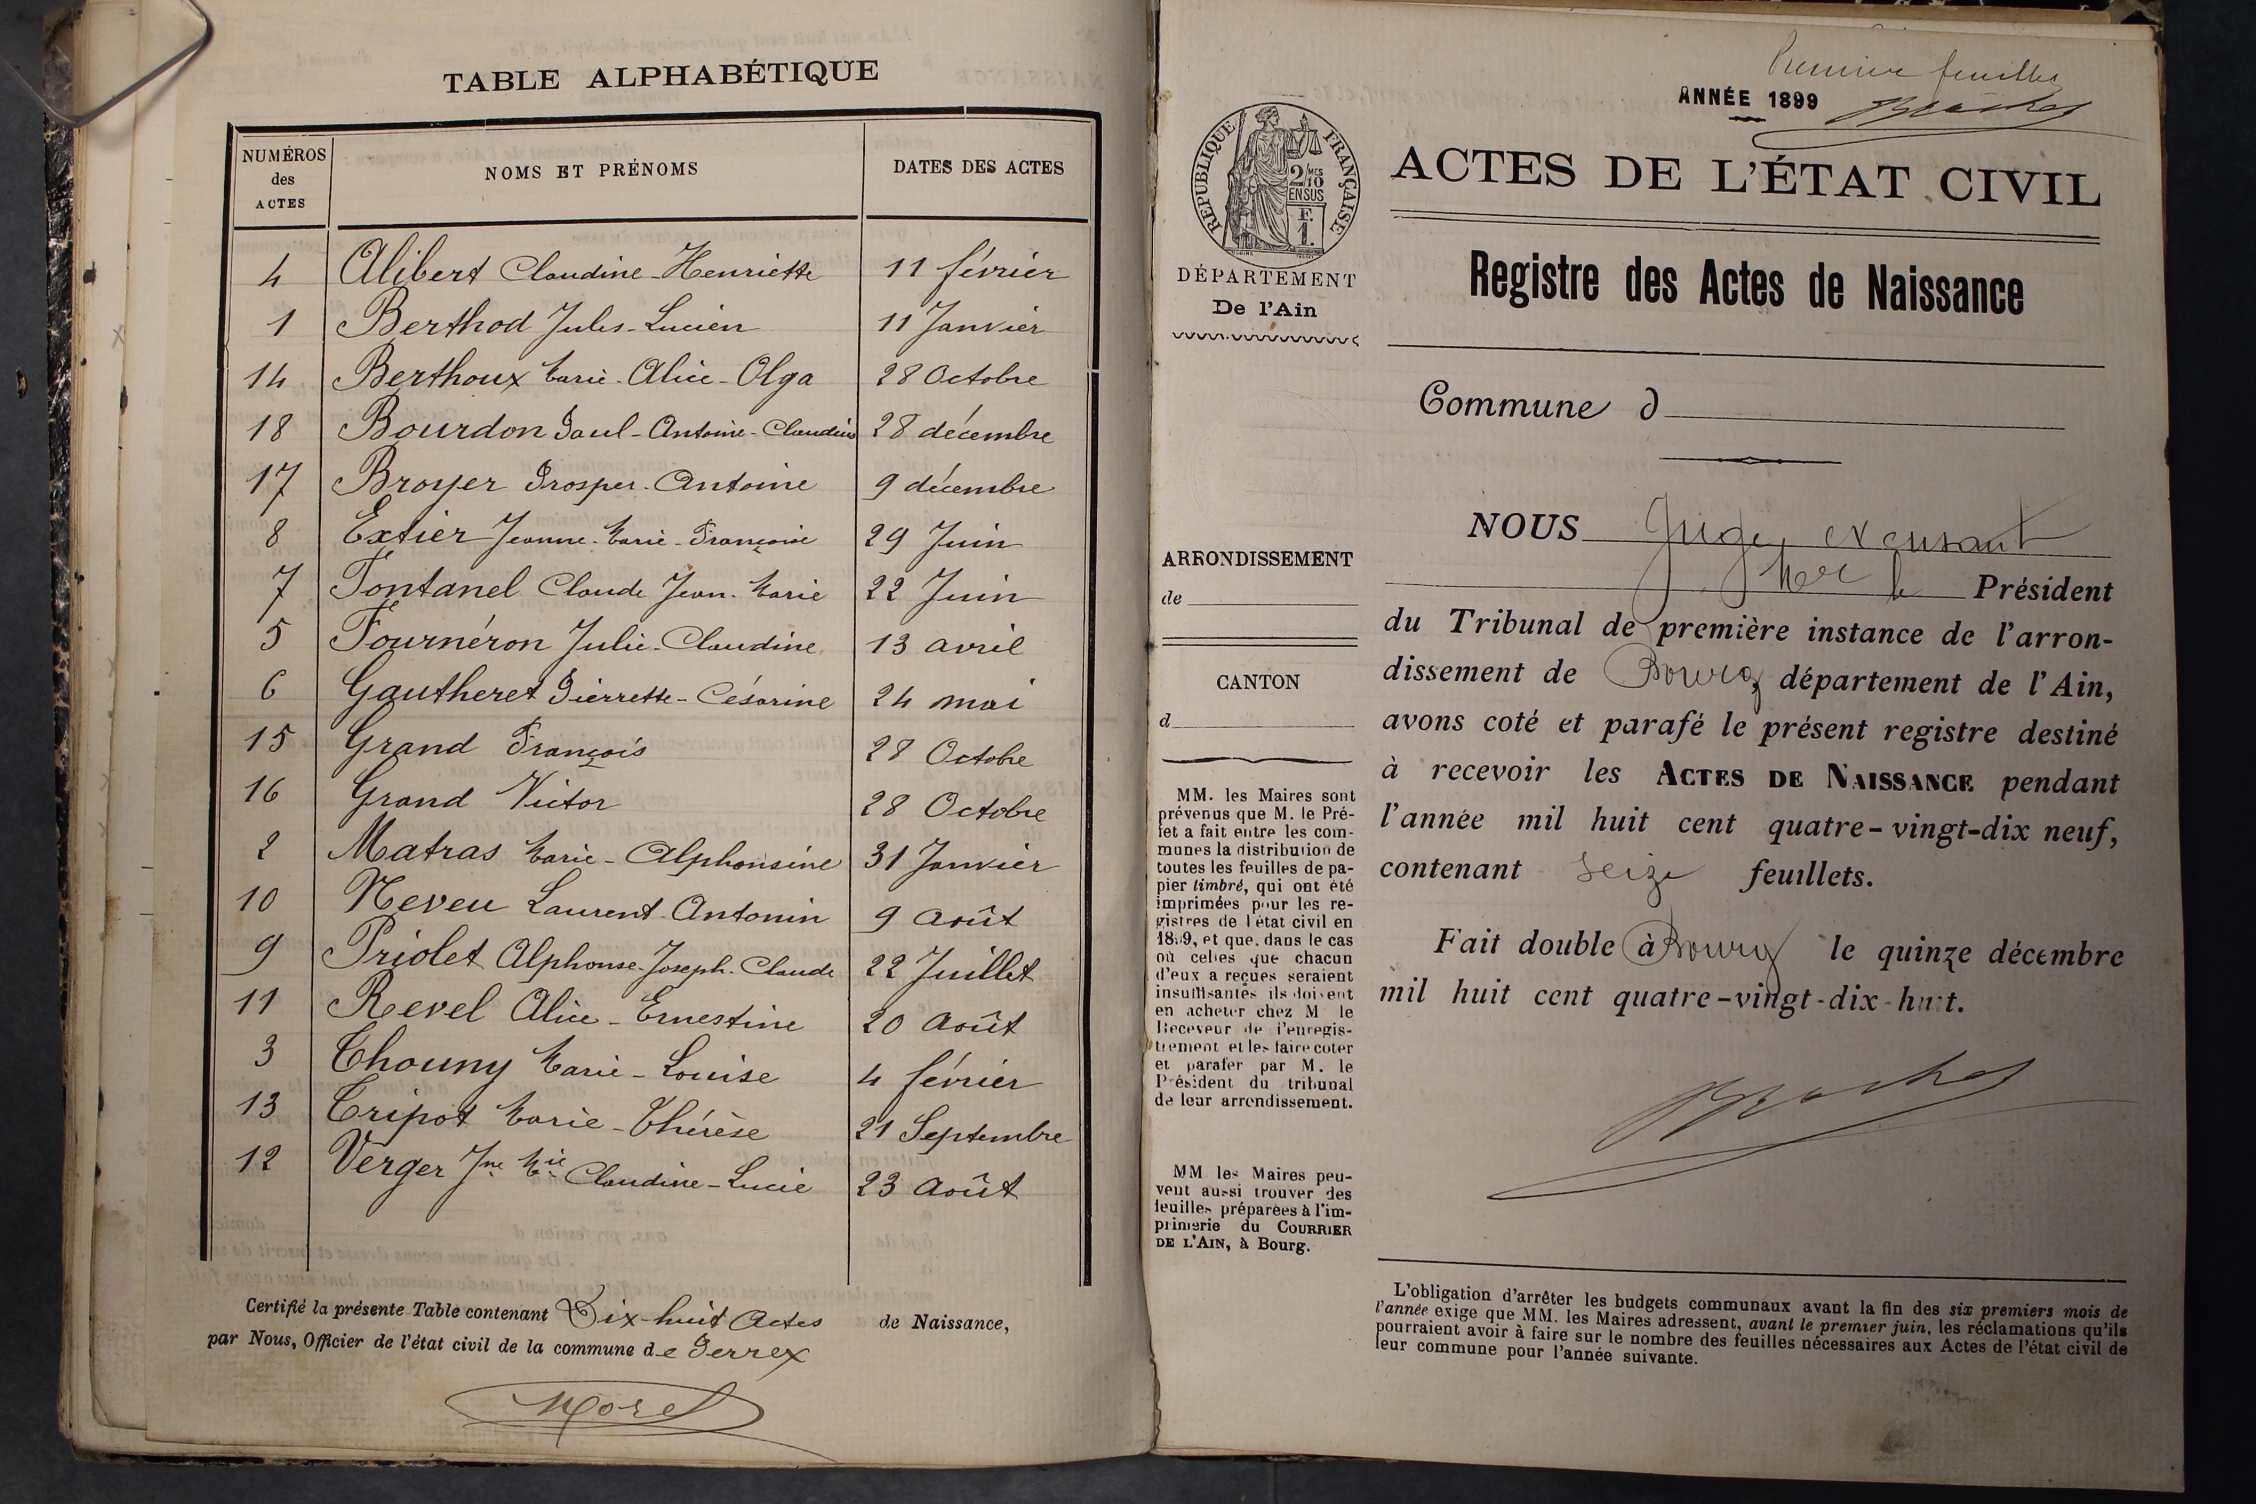 TABLE ALPHABÉTIQUE
NUMÉROS des ACTES
NOMS ET PRÉNOMS
DATES DES ACTES
4 Alibert Claudine-Henriette 11 février
1 Berthod Jules-Lucien 11 Janvier
14 Berthoux Marie-Alice-Olga 28 Octobre
18 Bourdon Paul-Antoine-Claudius 28 décembre
17 Broyer Prosper-Antoine 9 décembre
8 Extier Jeanne-Marie-Françoise 29 Juin
7 Fontanel Claude Jean-Marie 22 Juin
5 Fournéron Julie-Claudine 13 avril
6 Gautheret Pierrette-Césarine 24 mai
15 Grand François 28 Octobre
16 Grand Victor 28 Octobre
2 Matras Marie-Alphonsine 31 Janvier
10 Neveu Laurent-Antonin 9 Août
9 Priolet Alphonse-Joseph-Claude 22 Juillet
11 Revel Alice-Ernestine 20 Août
3 Thouny Marie-Louise 4 février
13 Tripot Marie-Thérèse 21 Septembre
12 Verger Jne Mie Claudine-Lucie 23 Août
Certifié la présente Table contenant Dix-huit Actes de Naissance,
par Nous, Officier de l'état civil de la commune de Perrex
Morel
Première feuille
ANNÉE 1899
RÉPUBLIQUE FRANÇAISE
2/10 MES
EN SUS
F.
1.
DÉPARTEMENT
De l'Ain
ACTES DE L'ÉTAT CIVIL
Registre des Actes de Naissance
Commune d
ARRONDISSEMENT
de
CANTON
d
MM. les Maires sont
prévenus que M. le Pré-
fet a fait entre les com-
munes la distribution de
toutes les feuilles de pa-
pier timbré, qui ont été
imprimées pour les re-
gistres de l'état civil en
1899, et que, dans le cas
où celles que chacun
d'eux a reçues seraient
insuffisantes ils doivent
en acheter chez M le
Receveur de l'enregis-
trement et les faire coter
et parafer par M. le
Président du tribunal
de leur arrondissement.
MM les Maires peu-
vent aussi trouver des
feuilles préparées à l'im-
primerie du COURRIER
DE L'AIN, à Bourg.
NOUS Juge, excusant
Mr le Président
du Tribunal de première instance de l'arron-
dissement de Bourg département de l'Ain,
avons coté et parafé le présent registre destiné
à recevoir les ACTES DE NAISSANCE pendant
l'année mil huit cent quatre-vingt-dix neuf,
contenant seize feuillets.
Fait double à Bourg le quinze décembre
mil huit cent quatre-vingt-dix-huit.
L'obligation d'arrêter les budgets communaux avant la fin des six premiers mois de
l'année exige que MM. les Maires adressent, avant le premier juin, les réclamations qu'ils
pourraient avoir à faire sur le nombre des feuilles nécessaires aux Actes de l'état civil de
leur commune pour l'année suivante.